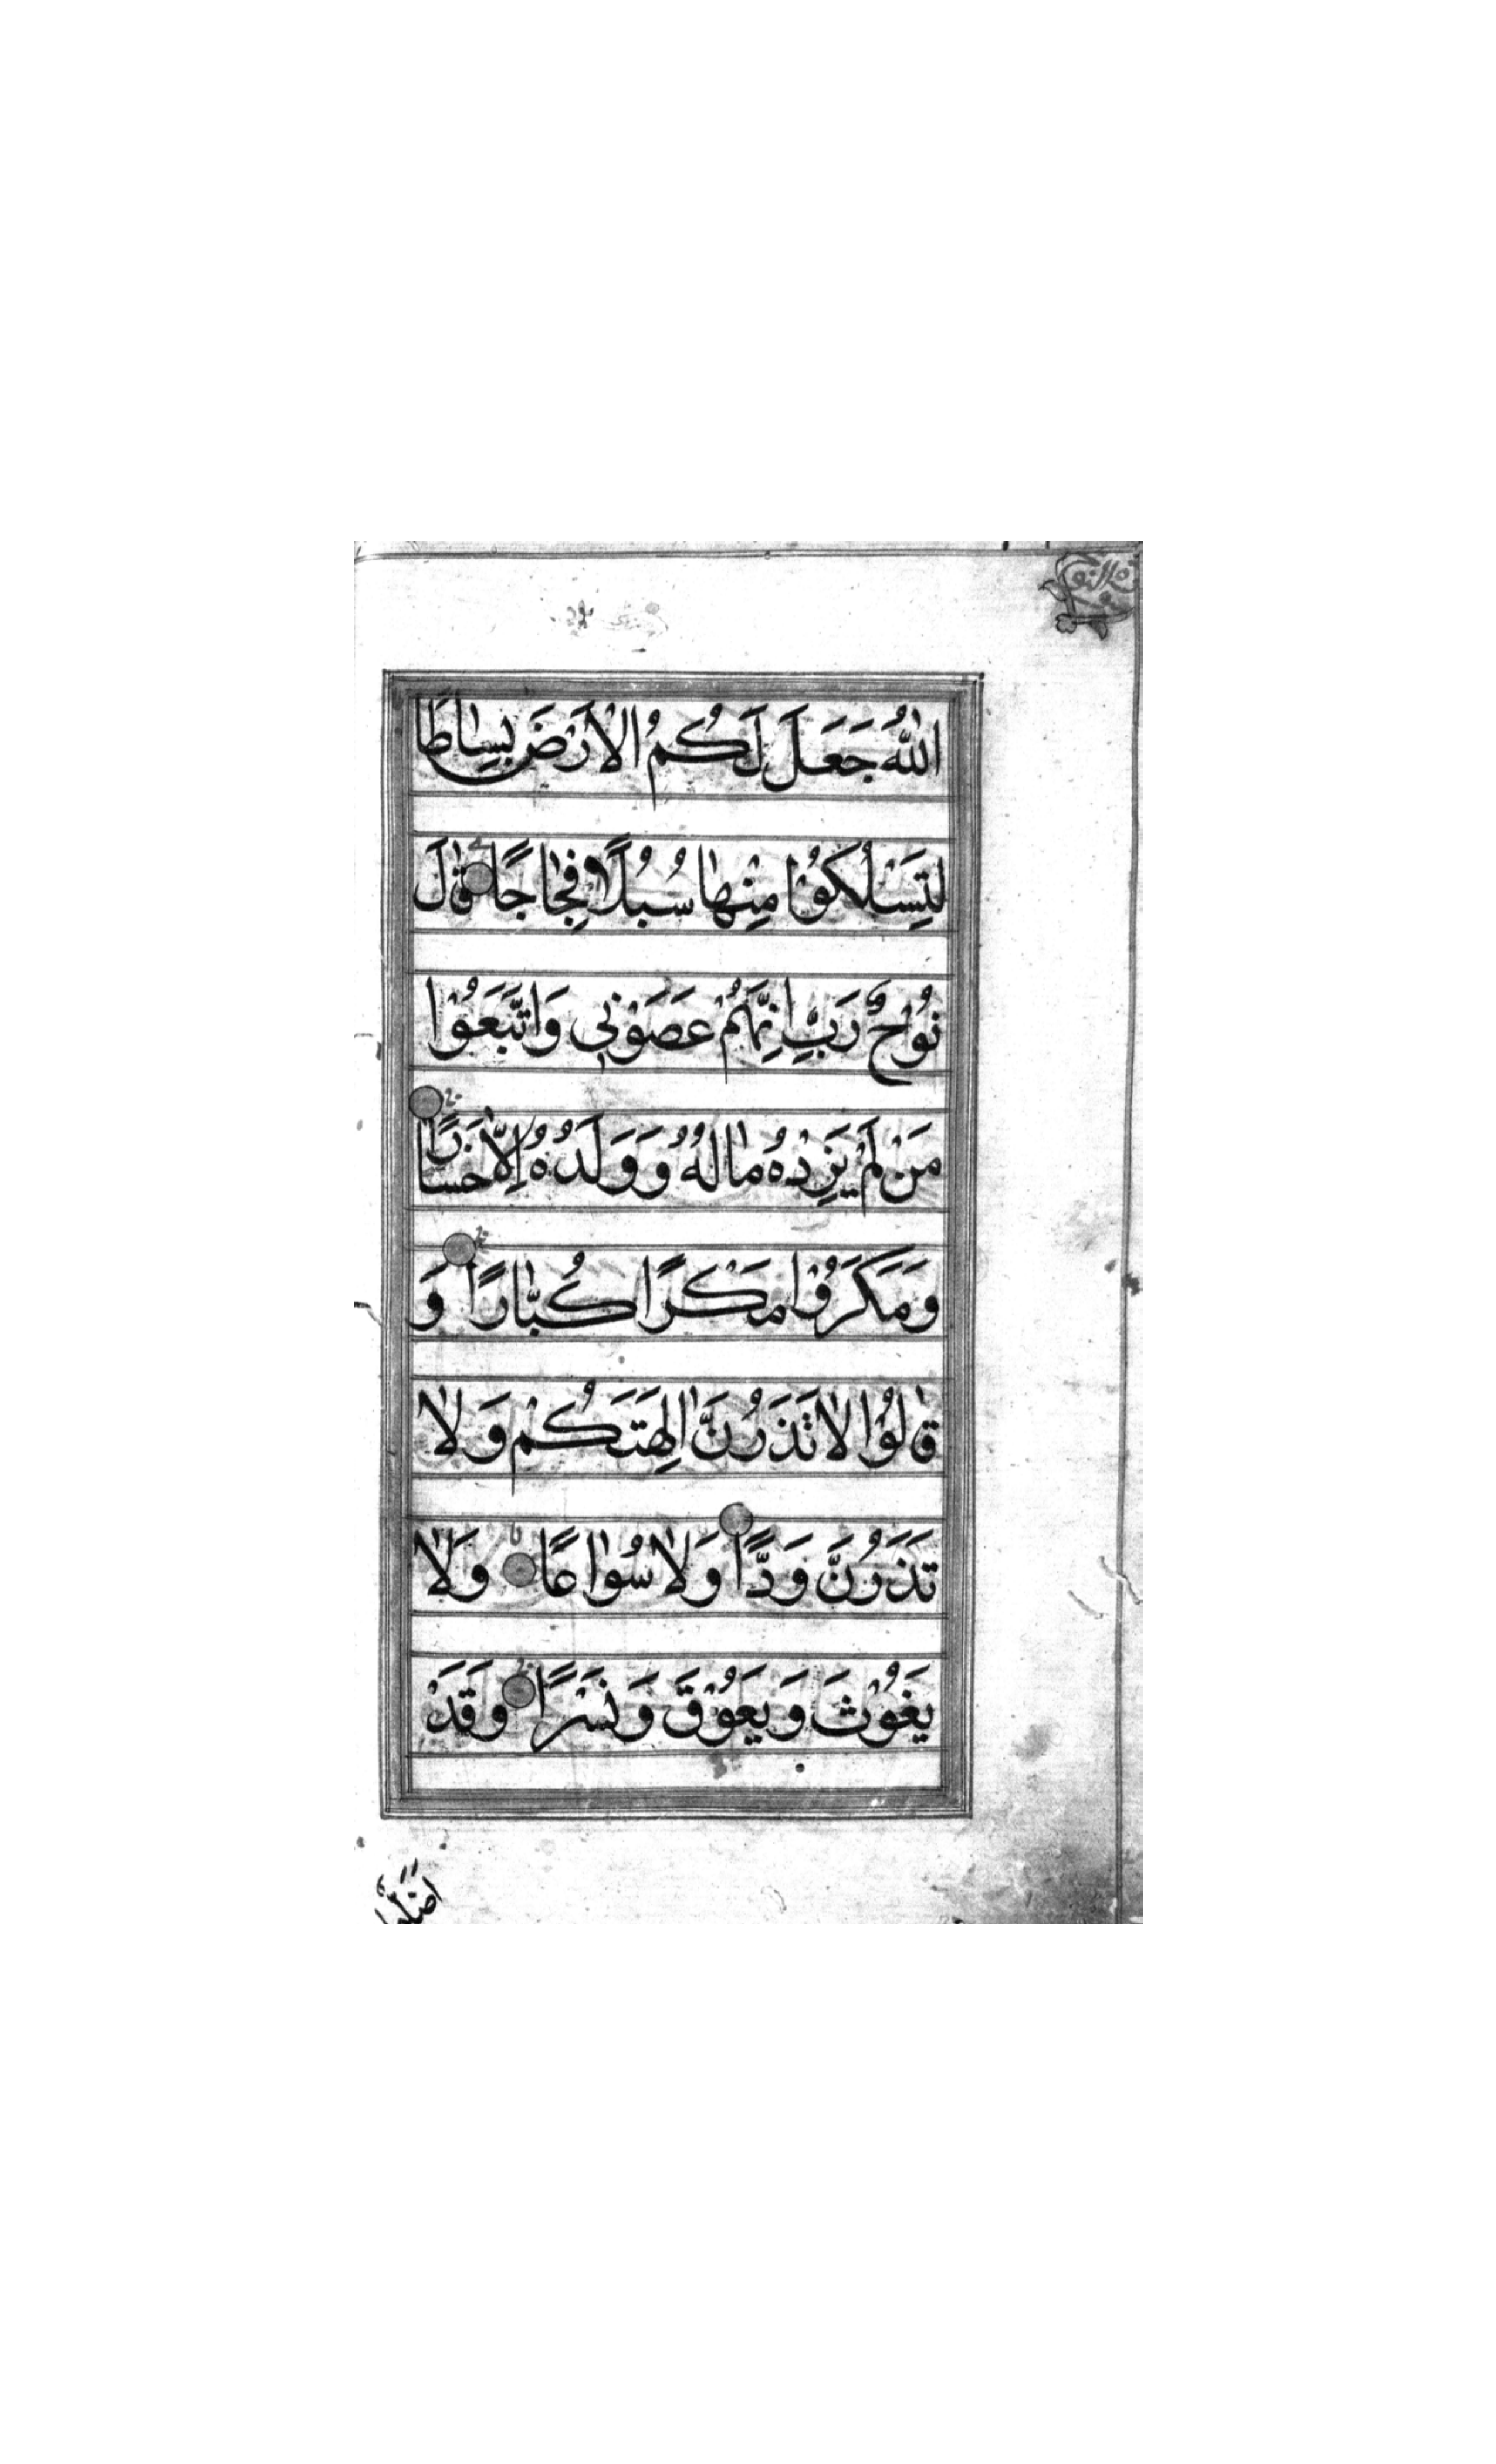 اللّٰهُ جَعَلَ لَكُمُ الْاَرْضَ بِسَاطًا
لِتَسْلُكُوْا مِنْهَا سُبُلًا فِجَاجًا قَالَ
نُوْحٌ رَبِّ اِنَّهُمْ عَصَوْنِي وَاتَّبَعُوْا
مَنْ لَمْ يَزِدْهُ مَالُهُ وَوَلَدُهُ اِلَّا خَسَارًا
وَمَكَرُوْا مَكْرًا كُبَّارًا وَ
قَالُوْا لَا تَذَرُنَّ اٰلِهَتَكُمْ وَلَا
تَذَرُنَّ وَدًّا وَلَا سُوَاعًا وَلَا
يَغُوْثَ وَيَعُوْقَ وَنَسْرًا وَقَدْ
اضلوا